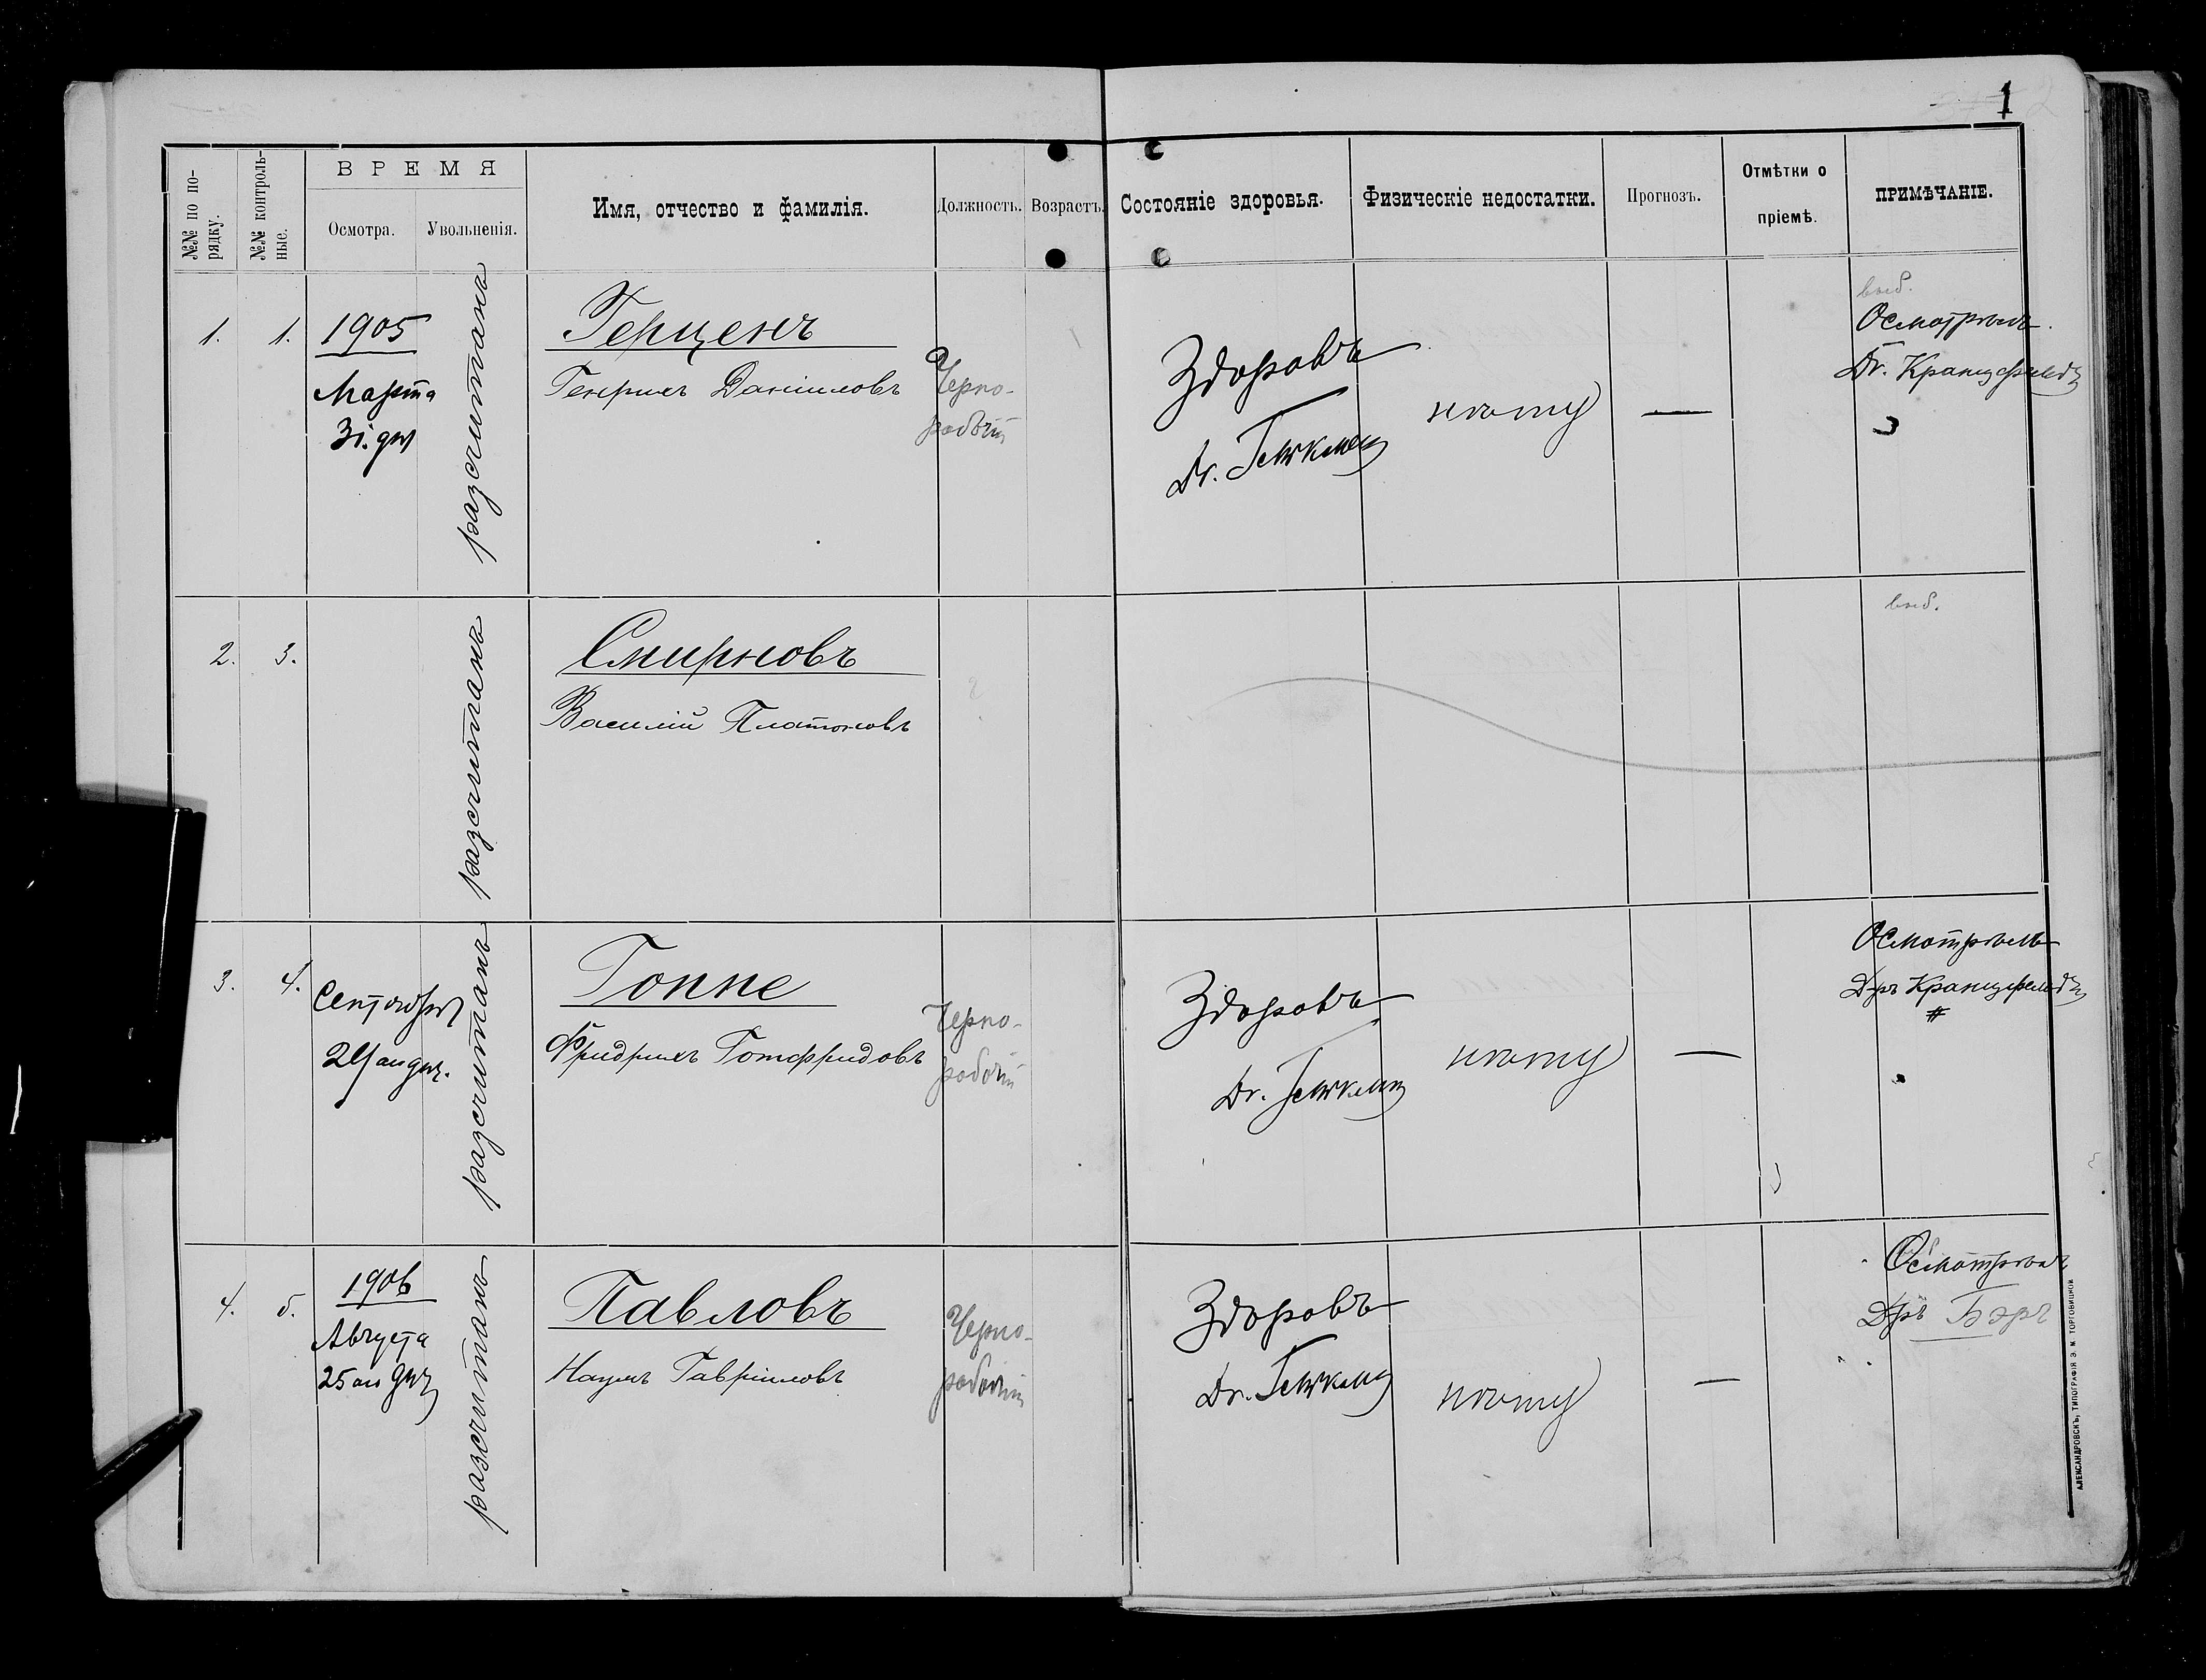 1
№№ по по-
рядку.
№№ контроль-
ные.
ВРЕМЯ
Осмотра.
Увольненія.
Имя, отчество и фамилія.
Должность.
Возрастъ.
Состояніе здоровья.
Физическіе недостатки.
Прогнозъ.
Отмѣтки о
пріемѣ.
ПРИМѢЧАНІЕ.
1.
1.
1905
Марта
31. дня
разсчитанъ
Герценъ
Генрихъ Даніиловъ
Черно-
рабочій
Здоровъ
Dr.
нѣту
—
выб.
Осмотрѣлъ.
Dr. Кранцфельдъ
2.
3.
разсчитанъ
Смирновъ
Василій Платоновъ
выб.
3.
4.
Сентября
24го дня.
разсчитанъ
Гоппе
Фридрихъ Готфридовъ
Черно-
рабочій
Здоровъ
Dr.
нѣту
—
Осмотрѣлъ
Д-ръ Кранцфельдъ
4.
5.
1906
Августа
25го дня
разсчитанъ
Павловъ
Наумъ Гавріиловъ
Черно-
рабочій
Здоровъ
Dr.
нѣту
—
Осмотрѣлъ
Д-ръ Бэръ
АЛЕКСАНДРОВСКЪ, ТИПОГРАФІЯ Э. М. ТОРГОВИЦКОЙ